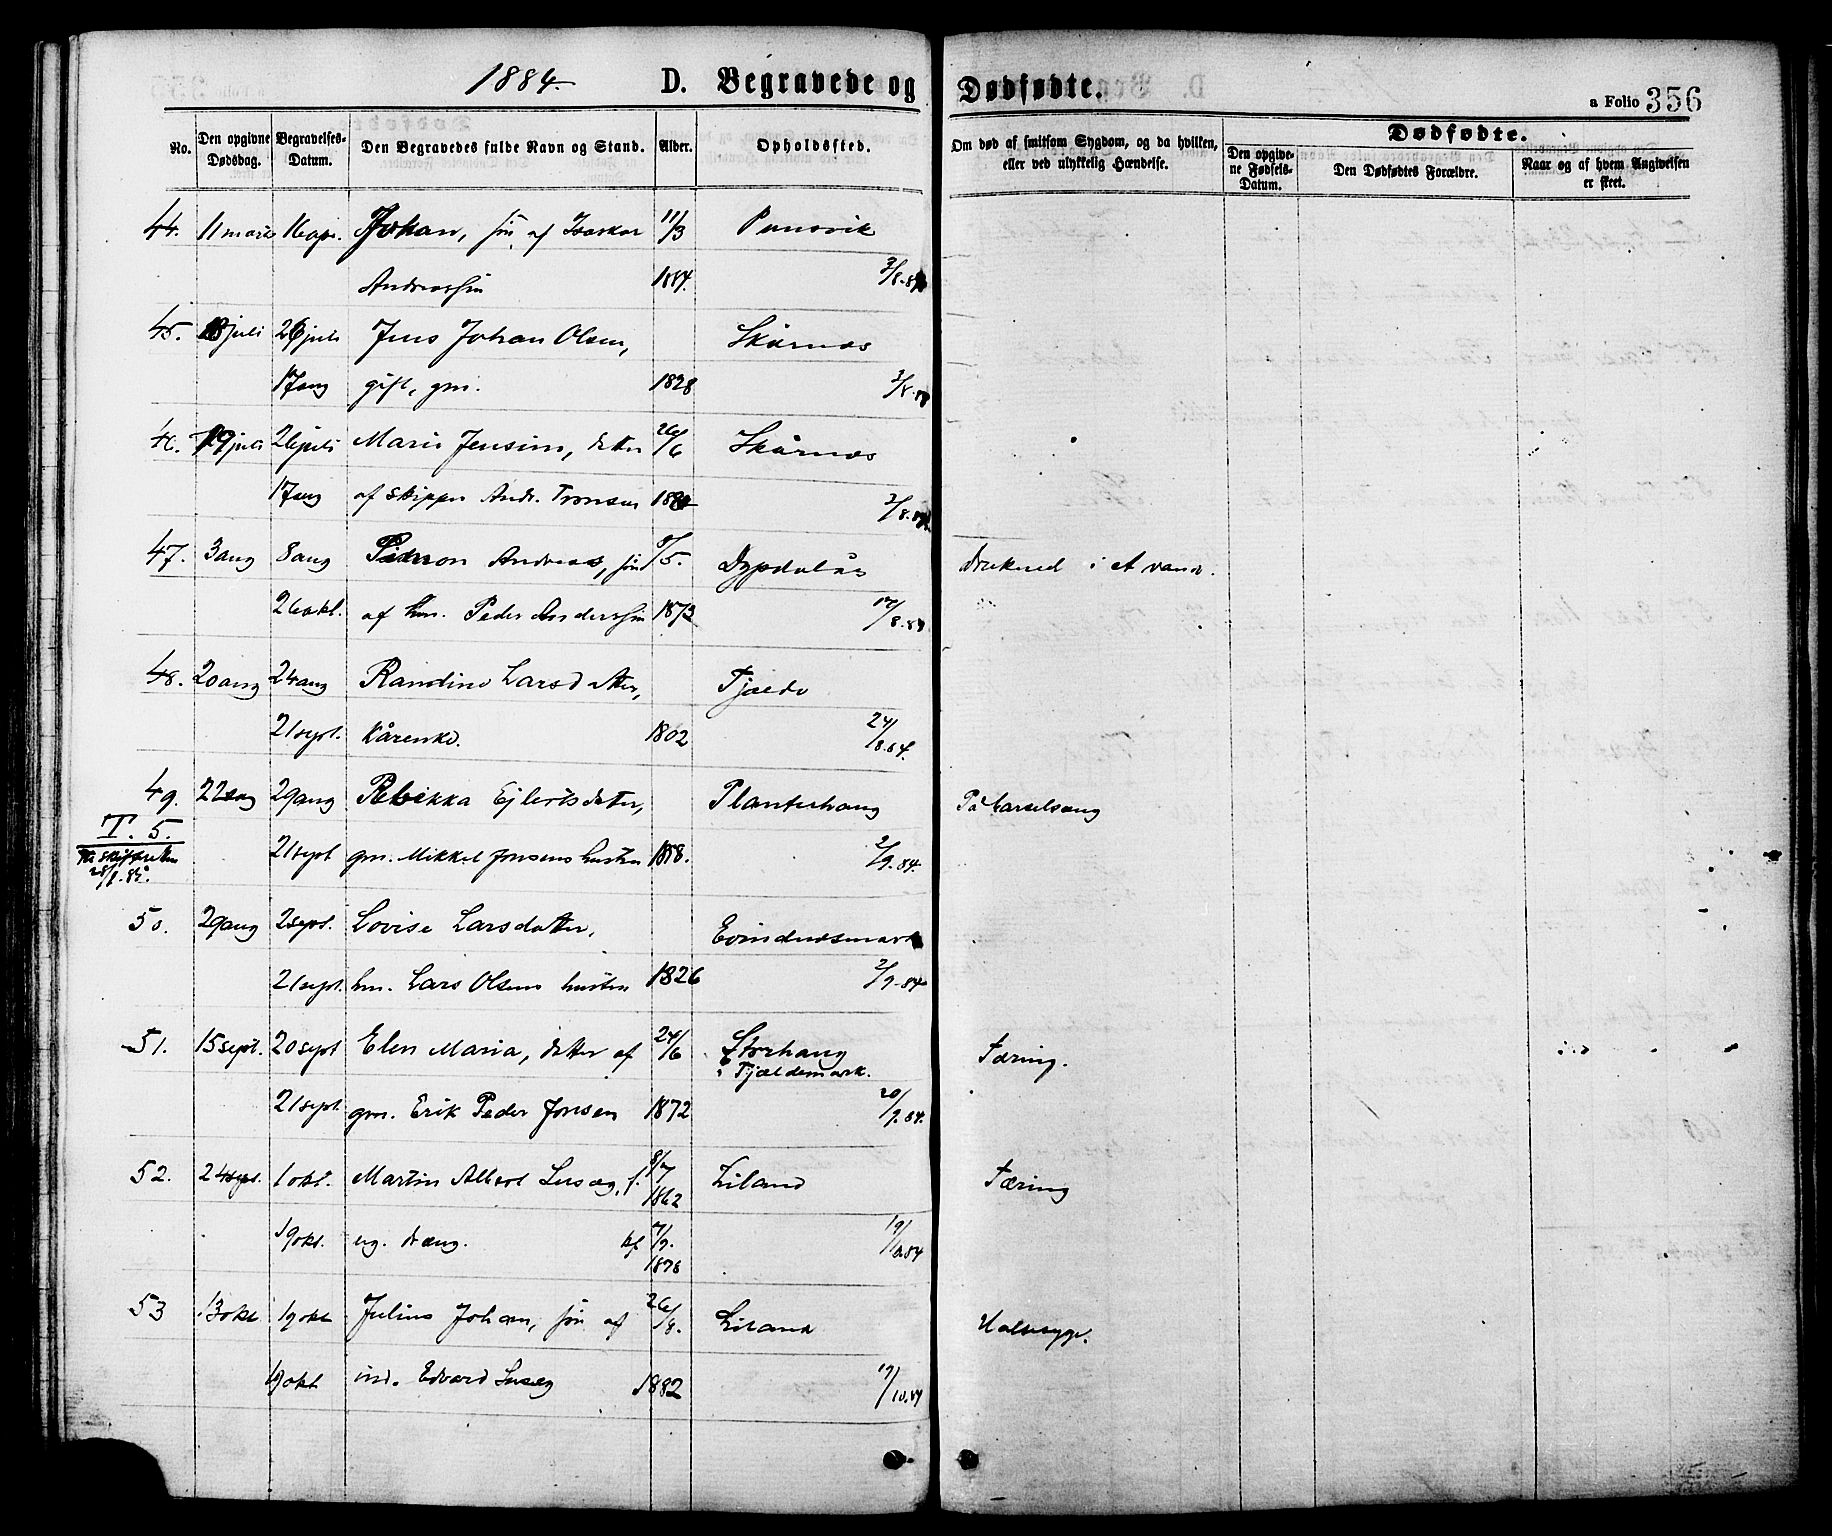 1884. D. Begravede og Dødfødte.
a Folio 356
No. Den opgivne Dødsdag. Begravelses-Datum. Den Begravedes fulde Navn og Stand. Alder. Opholdssted. Om død af smitsom Sygdom, og da hvilken, eller ved ulykkelig Hændelse. Dødfødte. Den opgivne Fødsels-Datum. Den Dødfødtes Forældre. Naar og af hvem Angivelsen er skeet.
44. 11 marts 16 apr. Johan, søn af Isaskar 11/3 Punsvik
Andreassøn 1884. 3/8.84
45. 18 juli 26 juli Jens Johan Olsen, Skårnes
17 aug gift, gm. 1828 3/8.84
46. 19 juli 26 juli Marie Jensine, datter 26/6 Skårnes
17 aug af skipper Andr. Tronsen 1884 3/8.84
47. 3 aug 8 aug Andreas, søn /5. Dypdalås Druknet i et vand.
26 okt. af hm. Peder Anderssøn 1873 17/8.84
48. 20 aug 24 aug Randine Larsdatter, Tjælde
21 sept. kårenke. 1802 24/8.84.
49. 22 aug 29 aug Rebikka Ejlertsdatter, Planterhaug På barselseng
T. 5.
21 sept gm. Mikkel Jonsens hustru 1858. 2/9.84.
28/1.85.
50. 29 aug 2 sept. Lovise Larsdatter, Evindnesmark
21 sept. hm. Lars Olsens hustru 1826 2/9.84
51. 15 sept. 20 sept Elen Maria, datter af 24/6 Storhaug Tæring.
i Tjældemark.
21 sept. gm. Erik Peder Jonsen 1872 20/9.84.
52. 24 sept. 1 okt. Martin Albert Lusæg, f. 8/7 1862 Liland Tæring
19 okt. ug. dræng. kf 7/9. 1878 19/10.84
53 13 okt 19 okt Julius Johan, søn af 26/8. Liland Halssyge.
19 okt ind. Edvard Lusæg 1882 19/10.84